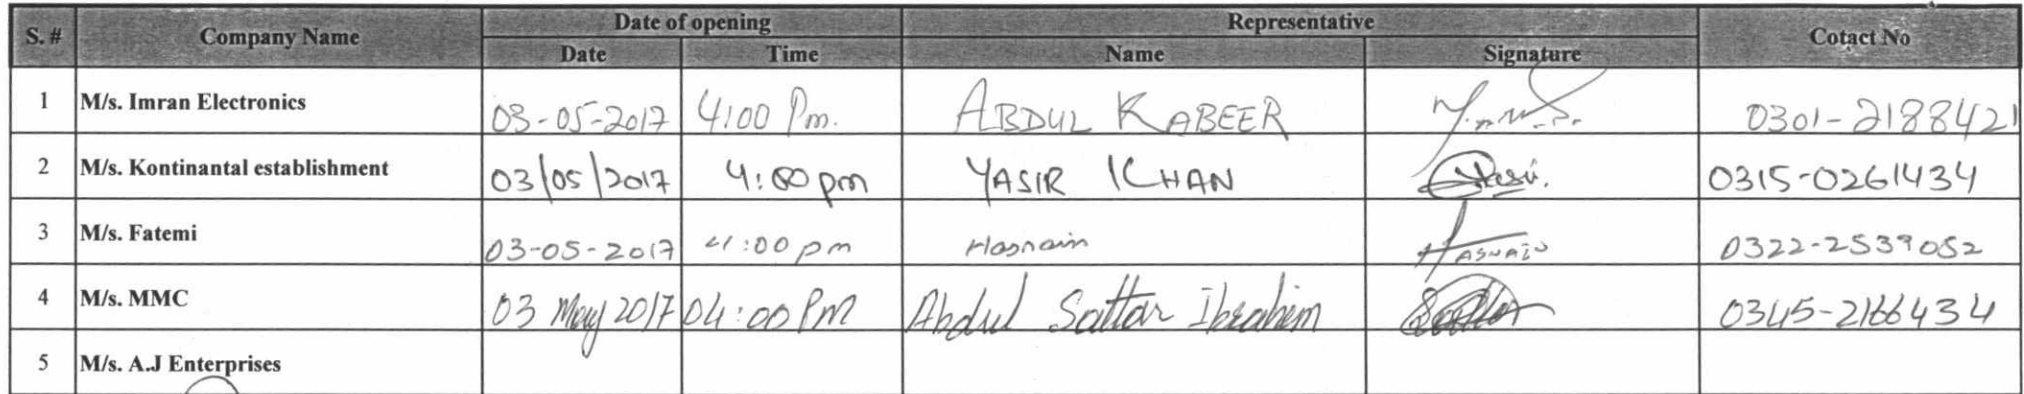 S. # Company Name Date of opening Representative Cotact No
Date Time Name Signature
1 M/s. Imran Electronics 03-05-2017 4:00 Pm. ABDUL KABEER 0301-2188421
2 M/s. Kontinantal establishment 03/05/2017 4:00 pm YASIR KHAN 0315-0261434
3 M/s. Fatemi 03-05-2017 4:00 pm Hasnain HASNAIN 0322-2539052
4 M/s. MMC 03 May 2017 04:00 PM Abdul Sattar Ibrahim 0345-2166434
5 M/s. A.J Enterprises